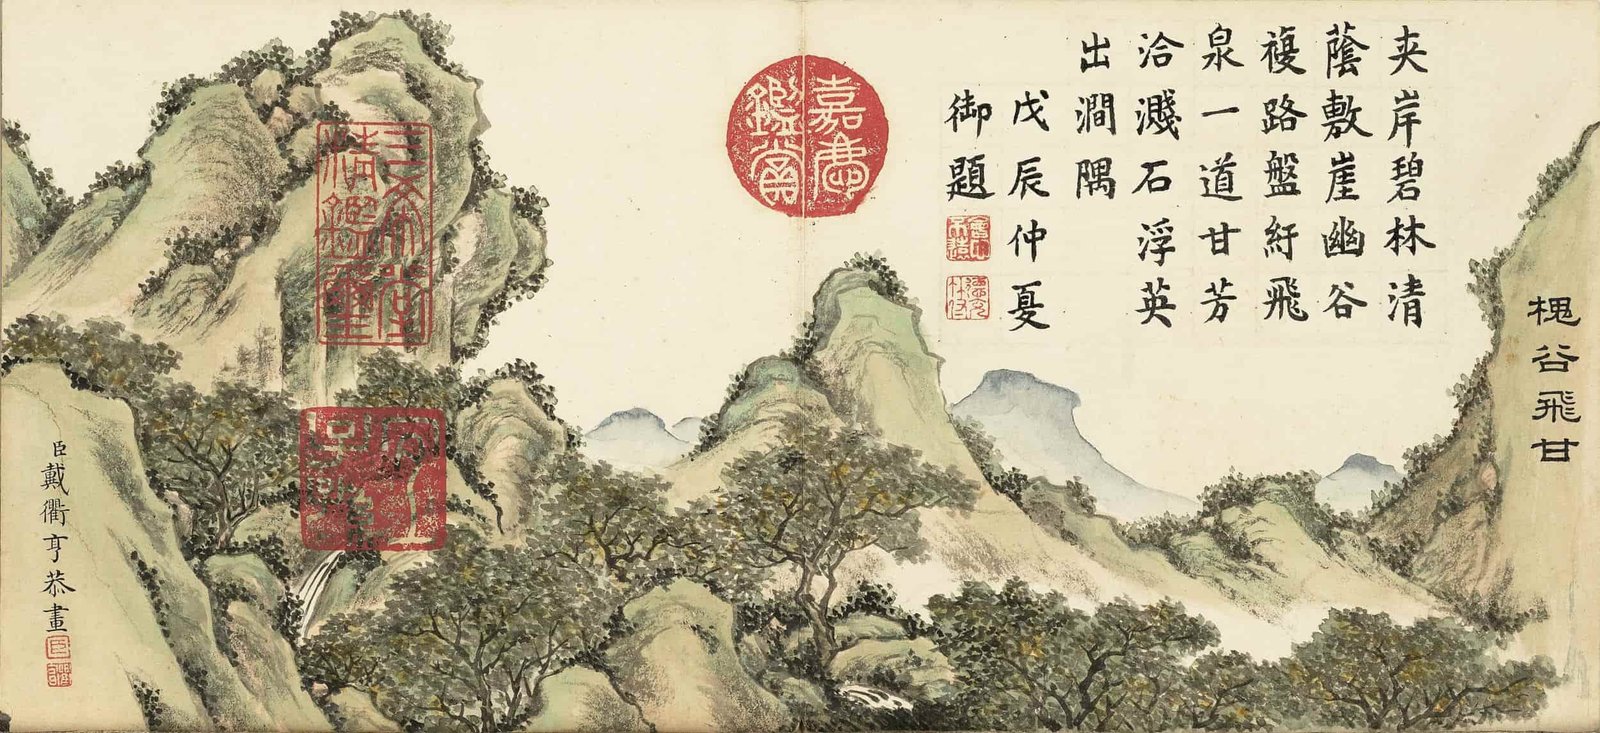 槐谷飛甘
夹岸碧林清
蔭敷崖幽谷
複路盤紆飛
泉一道甘芳
洽濺石浮英
出澗隅
戊辰仲夏
御題
嘉慶
鑑賞
三希堂
精鑑璽
宜子
孫
臣戴衢亨恭畫
臣